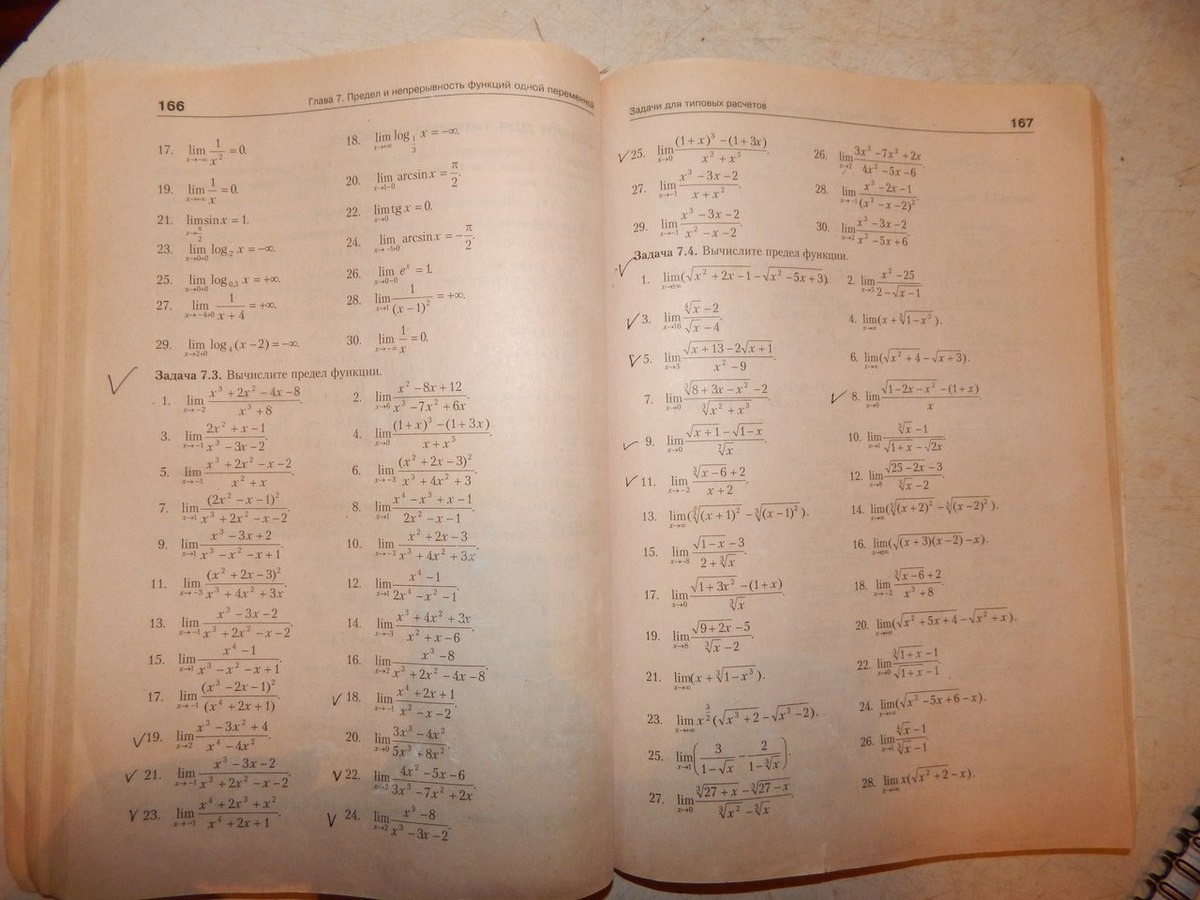 166
Глава 7. Предел и непрерывность функций одной переменной
17. lim_{x→−∞} 1/x² = 0.
18. lim_{x→+∞} log_{1/3} x = −∞.
19. lim_{x→+∞} 1/x = 0.
20. lim_{x→1−0} arcsin x = π/2.
21. lim_{x→π/2} sin x = 1.
22. lim_{x→0} tg x = 0.
23. lim_{x→0+0} log₂ x = −∞.
24. lim_{x→−1+0} arcsin x = −π/2.
25. lim_{x→0+0} log_{0,5} x = +∞.
26. lim_{x→0−0} eˣ = 1.
27. lim_{x→−4+0} 1/(x + 4) = +∞.
28. lim_{x→1} 1/(x − 1)² = +∞.
29. lim_{x→2+0} log₄(x − 2) = −∞.
30. lim_{x→−∞} 1/x = 0.
Задача 7.3. Вычислите предел функции.
1. lim_{x→−2} (x³ + 2x² − 4x − 8)/(x³ + 8).
2. lim_{x→6} (x² − 8x + 12)/(x³ − 7x² + 6x).
3. lim_{x→−1} (2x² + x − 1)/(x³ − 3x − 2).
4. lim_{x→0} ((1 + x)³ − (1 + 3x))/(x + x⁵).
5. lim_{x→−1} (x³ + 2x² − x − 2)/(x² + x).
6. lim_{x→−3} (x² + 2x − 3)²/(x³ + 4x² + 3).
7. lim_{x→1} (2x² − x − 1)²/(x³ + 2x² − x − 2).
8. lim_{x→1} (x⁴ − x³ + x − 1)/(2x² − x − 1).
9. lim_{x→1} (x³ − 3x + 2)/(x³ − x² − x + 1).
10. lim_{x→−3} (x² + 2x − 3)/(x³ + 4x² + 3x).
11. lim_{x→−3} (x² + 2x − 3)²/(x³ + 4x² + 3x).
12. lim_{x→1} (x⁴ − 1)/(2x⁴ − x² − 1).
13. lim_{x→−1} (x³ − 3x − 2)/(x³ + 2x² − x − 2).
14. lim_{x→−3} (x³ + 4x² + 3x)/(x² + x − 6).
15. lim_{x→1} (x⁴ − 1)/(x³ − x² − x + 1).
16. lim_{x→2} (x³ − 8)/(x³ + 2x² − 4x − 8).
17. lim_{x→−1} (x³ − 2x − 1)²/(x⁴ + 2x + 1).
18. lim_{x→−1} (x⁴ + 2x + 1)/(x² − x − 2).
19. lim_{x→2} (x³ − 3x² + 4)/(x⁴ − 4x²).
20. lim_{x→0} (3x³ − 4x²)/(5x³ + 8x²).
21. lim_{x→−1} (x³ − 3x − 2)/(x³ + 2x² − x − 2).
22. lim_{x→2} (4x² − 5x − 6)/(3x³ − 7x² + 2x).
23. lim_{x→−1} (x⁴ + 2x³ + x²)/(x⁴ + 2x + 1).
24. lim_{x→2} (x³ − 8)/(x³ − 3x − 2).
Задачи для типовых расчетов
167
25. lim_{x→0} ((1 + x)³ − (1 + 3x))/(x² + x⁵).
26. lim_{x→2} (3x³ − 7x² + 2x)/(4x² − 5x − 6).
27. lim_{x→−1} (x³ − 3x − 2)/(x + x²).
28. lim_{x→−1} (x³ − 2x − 1)/(x² − x − 2)².
29. lim_{x→−1} (x³ − 3x − 2)/(x² − x − 2).
30. lim_{x→2} (x³ − 3x − 2)/(x² − 5x + 6).
Задача 7.4. Вычислите предел функции.
1. lim_{x→+∞} (√(x² + 2x − 1) − √(x² − 5x + 3)).
2. lim_{x→5} (x² − 25)/(2 − √(x − 1)).
3. lim_{x→16} (⁴√x − 2)/(√x − 4).
4. lim_{x→∞} (x + ³√(1 − x³)).
5. lim_{x→3} (√(x + 13) − 2√(x + 1))/(x² − 9).
6. lim_{x→∞} (√(x² + 4) − √(x + 3)).
7. lim_{x→0} (³√(8 + 3x − x²) − 2)/³√(x² + x³).
8. lim_{x→0} (√(1 − 2x − x²) − (1 + x))/x
9. lim_{x→0} (√(x + 1) − √(1 − x))/⁷√x.
10. lim_{x→1} (³√x − 1)/(√(1 + x) − √2x)
11. lim_{x→−2} (³√(x − 6) + 2)/(x + 2).
12. lim_{x→8} (√(25 − 2x) − 3)/(³√x − 2).
13. lim_{x→∞} (³√(x + 1)² − ³√(x − 1)²).
14. lim_{x→∞} (³√(x + 2)² − ³√(x − 2)²).
15. lim_{x→−8} (√(1 − x) − 3)/(2 + ³√x).
16. lim_{x→∞} (√((x + 3)(x − 2)) − x).
17. lim_{x→0} (√(1 + 3x²) − (1 + x))/³√x.
18. lim_{x→−2} (³√(x − 6) + 2)/(x³ + 8).
19. lim_{x→8} (√(9 + 2x) − 5)/(³√x − 2).
20. lim_{x→+∞} (√(x² + 5x + 4) − √(x² + x)).
21. lim_{x→∞} (x + ³√(1 − x³)).
22. lim_{x→0} (³√(1 + x) − 1)/(√(1 + x) − 1).
23. lim_{x→+∞} x^{3/2}(√(x³ + 2) − √(x³ − 2)).
24. lim_{x→+∞} (√(x² − 5x + 6) − x).
25. lim_{x→1} (3/(1 − √x) − 2/(1 − ³√x)).
26. lim_{x→1} (⁴√x − 1)/(³√x − 1).
27. lim_{x→0} (³√(27 + x) − ³√(27 − x))/(³√x² − ⁵√x).
28. lim_{x→+∞} x(√(x² + 2) − x).